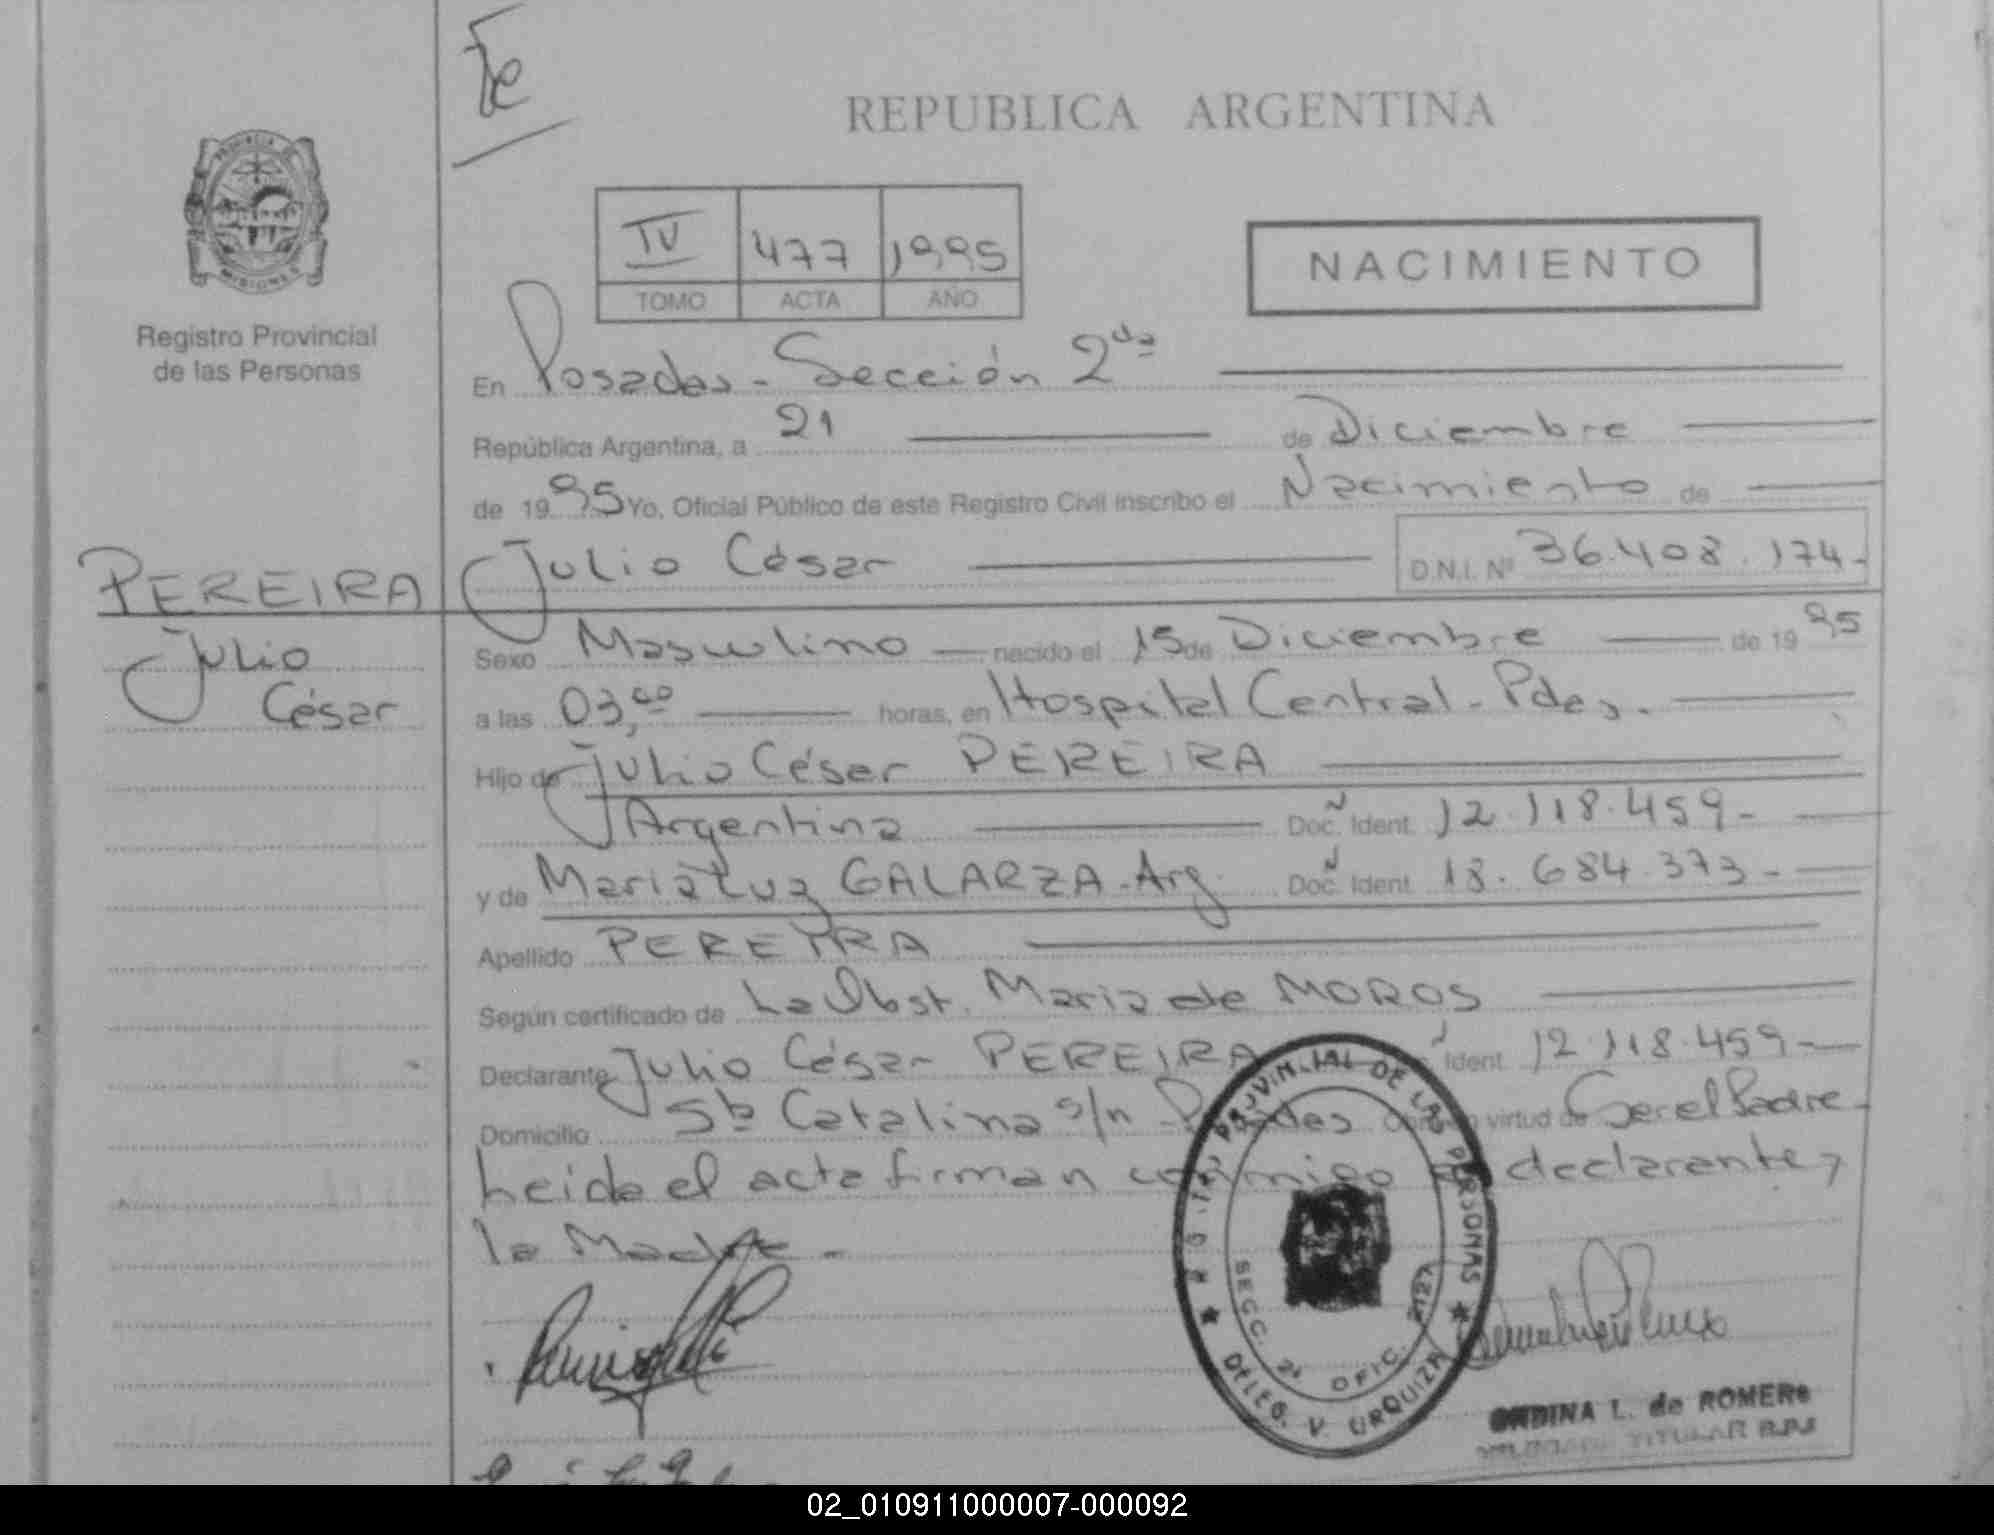 Te
REPUBLICA ARGENTINA
PROVINCIA DE
MISIONES
Registro Provincial
de las Personas
IV 477 1995
TOMO ACTA AÑO
NACIMIENTO
En Posadas - Sección 2da
República Argentina, a 21 de Diciembre
de 1995 Yo, Oficial Público de este Registro Civil inscribo el Nacimiento de
Julio César D.N.I. Nº 36.408.174-
PEREIRA
Julio
César
Sexo Masculino nacido el 15 de Diciembre de 1995
a las 03,00 horas, en Hospital Central - Pdas.
Hijo de Julio César PEREIRA
Argentina Doc. Ident. 12.118.459-
y de María Luz GALARZA - Arg. Doc. Ident. 18.684.373-
Apellido PEREYRA
Según certificado de La Obst. Maria de MOROS
Declarante Julio César PEREIRA Ident. 12.118.459-
Domicilio Sta Catalina s/n Posadas virtud de Ser el Padre
Leida el acta firman conmigo el declarante y
la Madre -
REG. PROVINCIAL DE LAS PERSONAS
SECC. 2ª OFIC. 2127
DELEG. V. URQUIZA
ONDINA L. de ROMERO
TITULAR R.P.P.
02_010911000007-000092